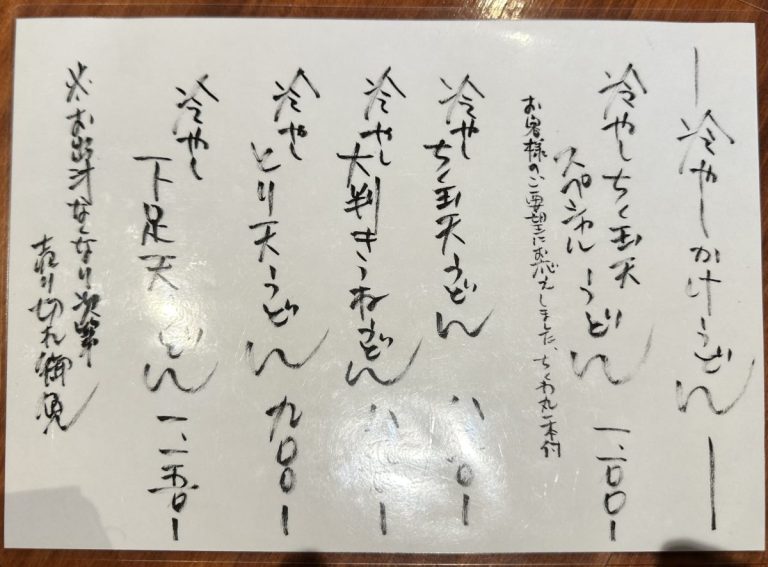 ー冷やしかけうどんー
冷やしちく玉天
スペシャルうどん 一、一〇〇ー
お客様のご要望にお応えしました、ちくわ丸一本付
冷やし
ちく玉天うどん 八 〇ー
冷やし
大判きつねうどん 八 ー
冷やし
とり天うどん 九〇〇ー
冷やし
下足天 どん 一、一五〇ー
※お出汁なくなり次第
売り切れ御免